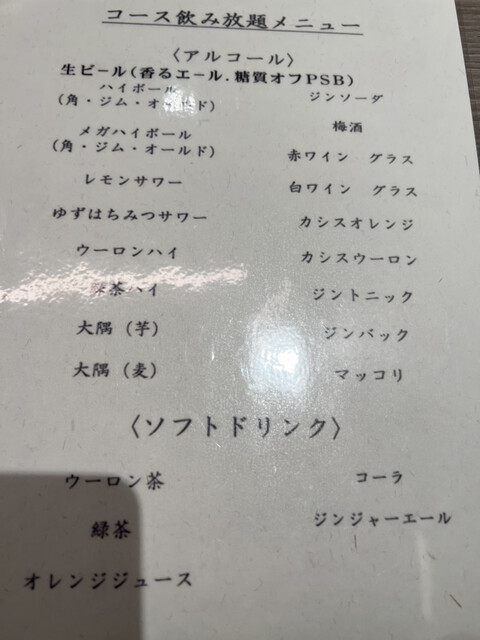 コース飲み放題メニュー
〈アルコール〉
生ビール(香るエール.糖質オフPSB)
ハイボール
(角・ジム・オールド)
メガハイボール
(角・ジム・オールド)
レモンサワー
ゆずはちみつサワー
ウーロンハイ
茶ハイ
大隅(芋)
大隅(麦)
ジンソーダ
梅酒
赤ワイン グラス
白ワイン グラス
カシスオレンジ
カシスウーロン
ジントニック
ジンバック
マッコリ
〈ソフトドリンク〉
ウーロン茶
緑茶
オレンジジュース
コーラ
ジンジャーエール